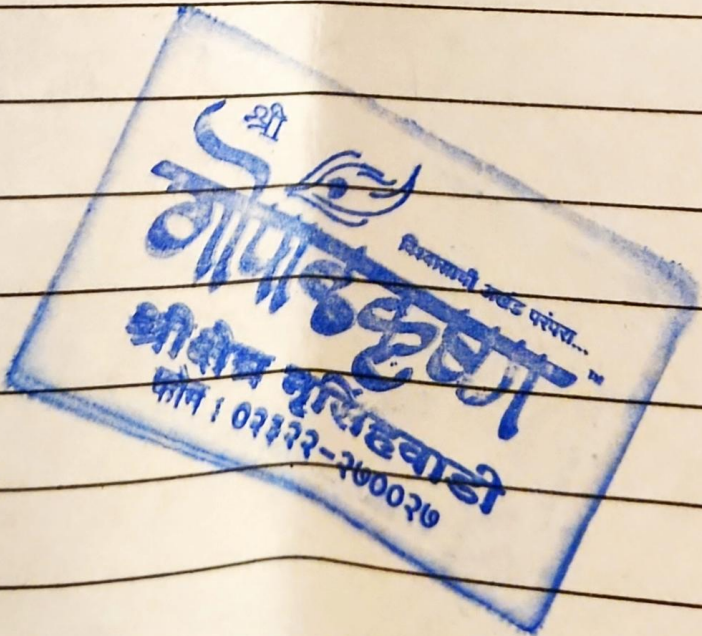 श्री
गोपाळकृष्ण
विश्वासाची अखंड परंपरा... ™
श्रीक्षेत्र नृसिंहवाडी
फोन : ०२३२२-२७००२७